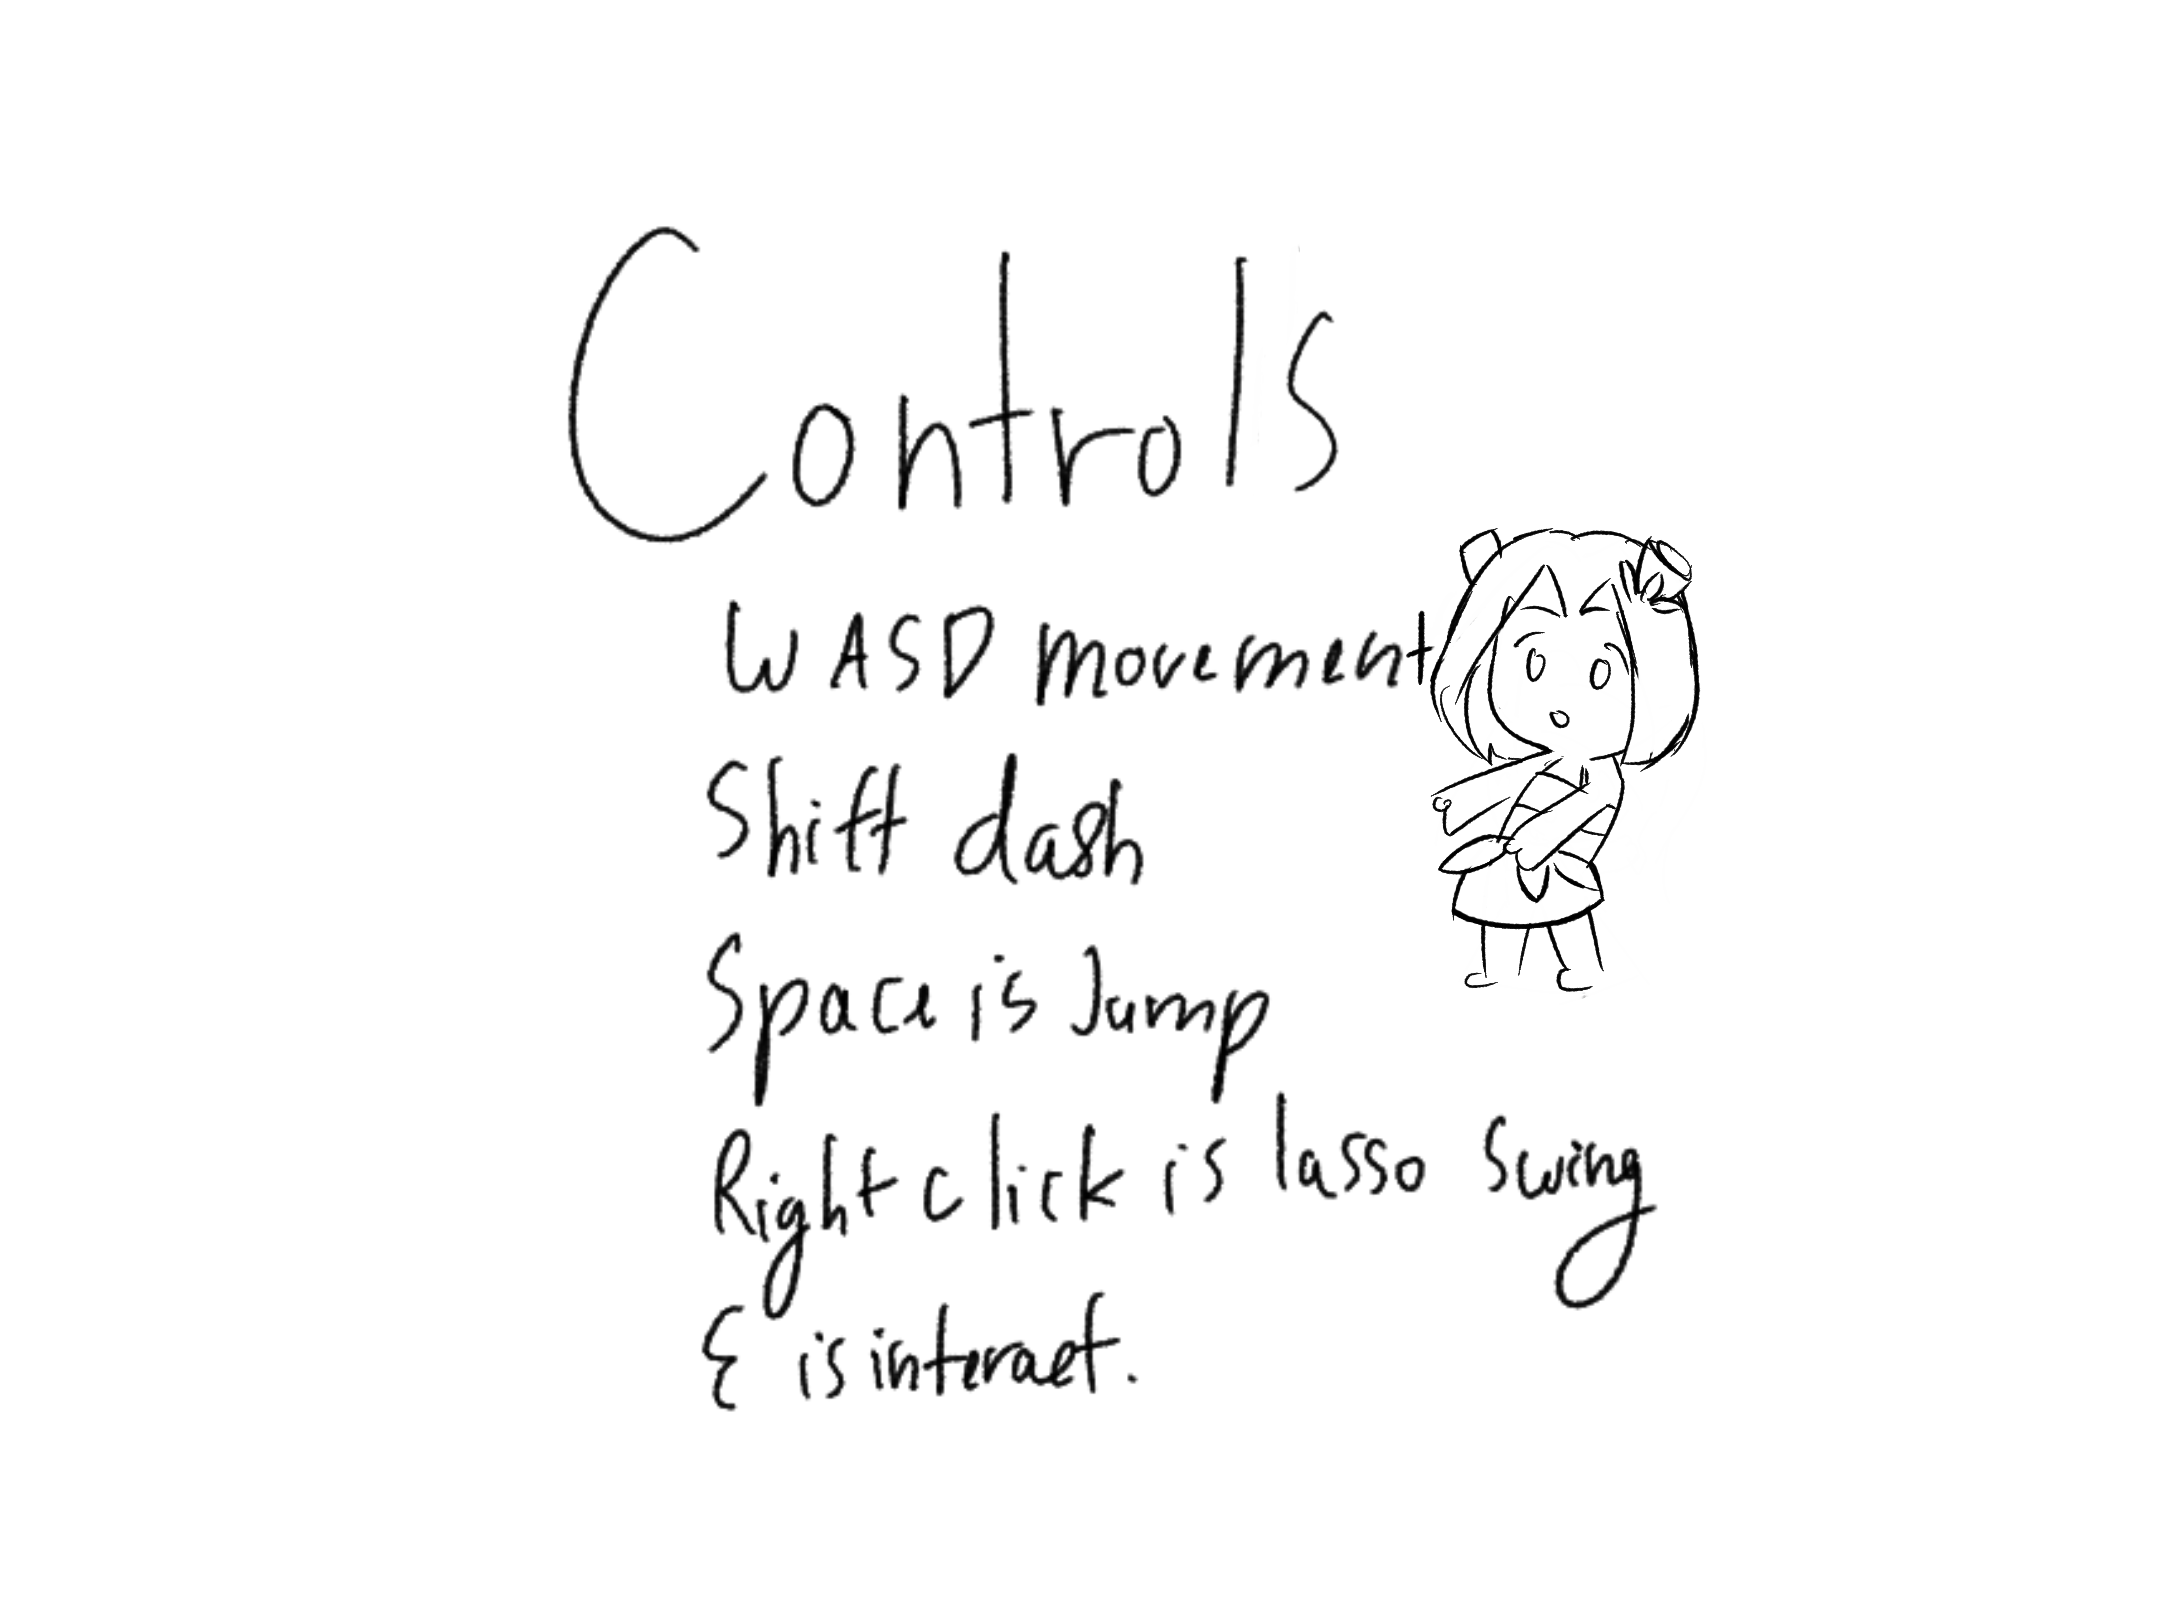 Controls
WASD movement
Shift dash
Space is Jump
Right click is lasso swing
E is interact.